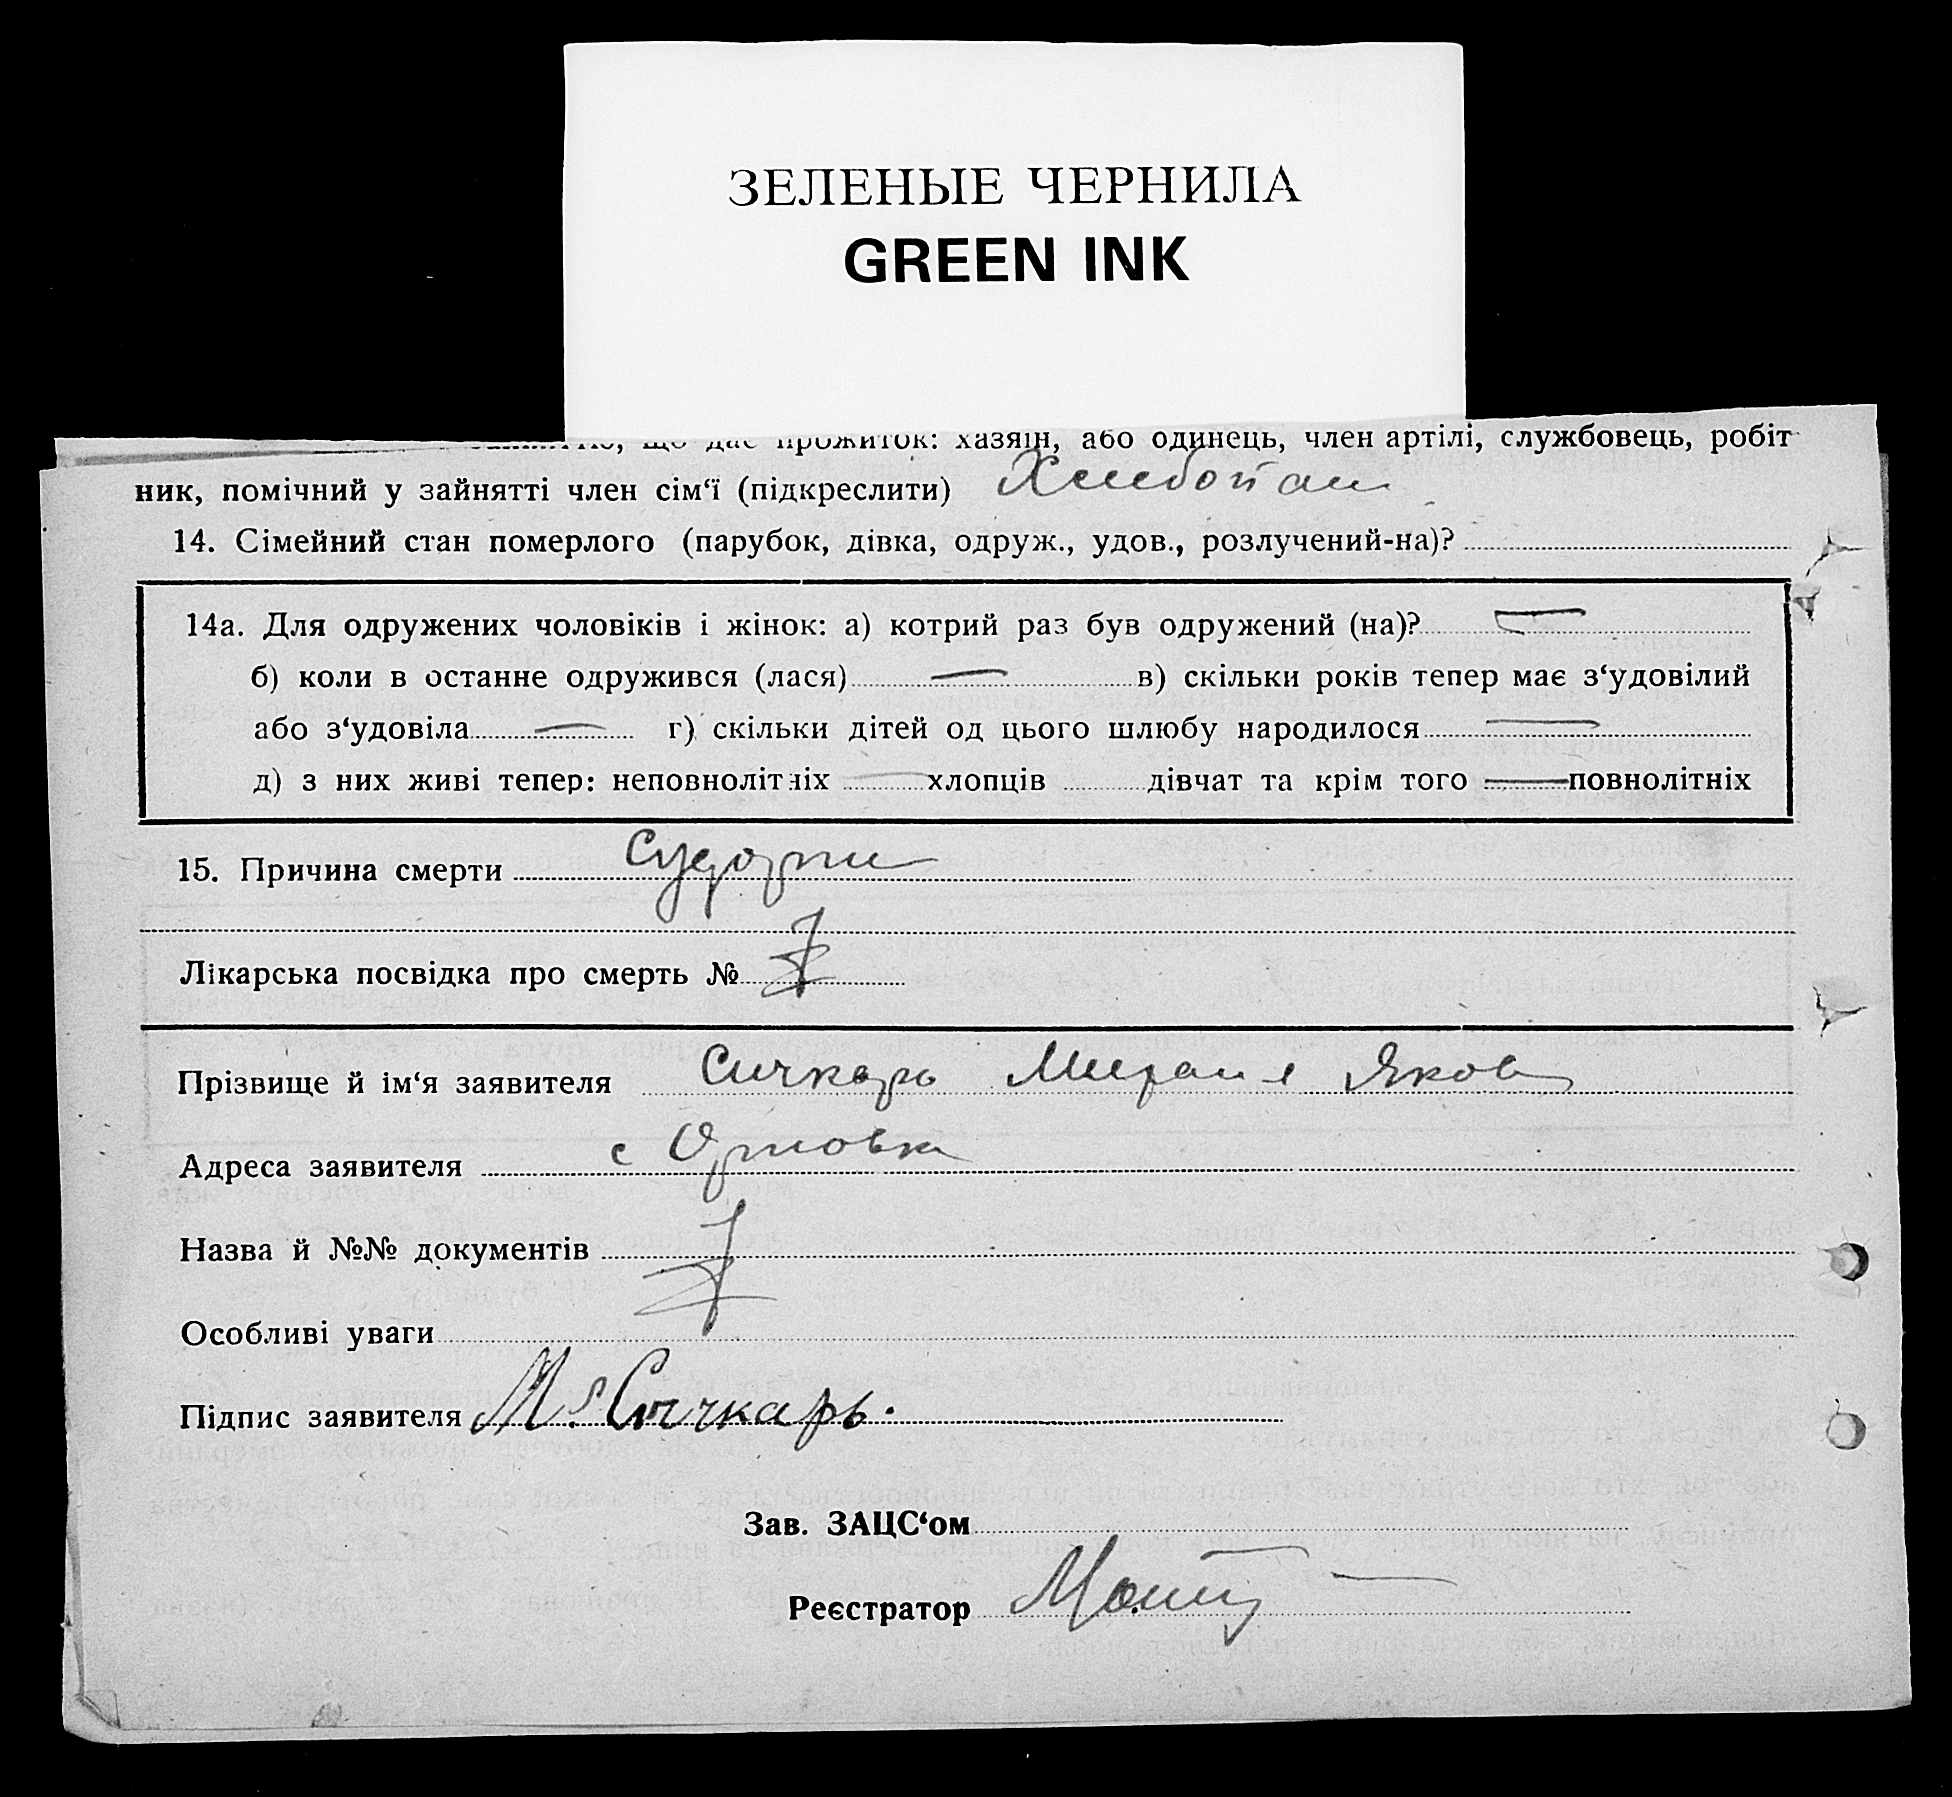 ЗЕЛЕНЫЕ ЧЕРНИЛА
GREEN INK
що дає прожиток: хазяїн, або одинець, член артілі, службовець, робіт
ник, помічний у зайнятті член сім‘ї (підкреслити)
14. Сімейний стан померлого (парубок, дівка, одруж., удов., розлучений-на)?
14а. Для одружених чоловіків і жінок: а) котрий раз був одружений (на)?
б) коли в останне одружився (лася) — в) скільки років тепер має з‘удовілий
або з‘удовіла — г) скільки дітей од цього шлюбу народилося —
д) з них живі тепер: неповнолітніх — хлопців дівчат та крім того — повнолітніх
15. Причина смерти Судорги
Лікарська посвідка про смерть №
Прізвище й ім‘я заявителя Сичкарь Яков
Адреса заявителя с
Назва й №№ документів
Особливі уваги
Підпис заявителя М Сичкарь.
Зав. ЗАЦС‘ом
Реєстратор